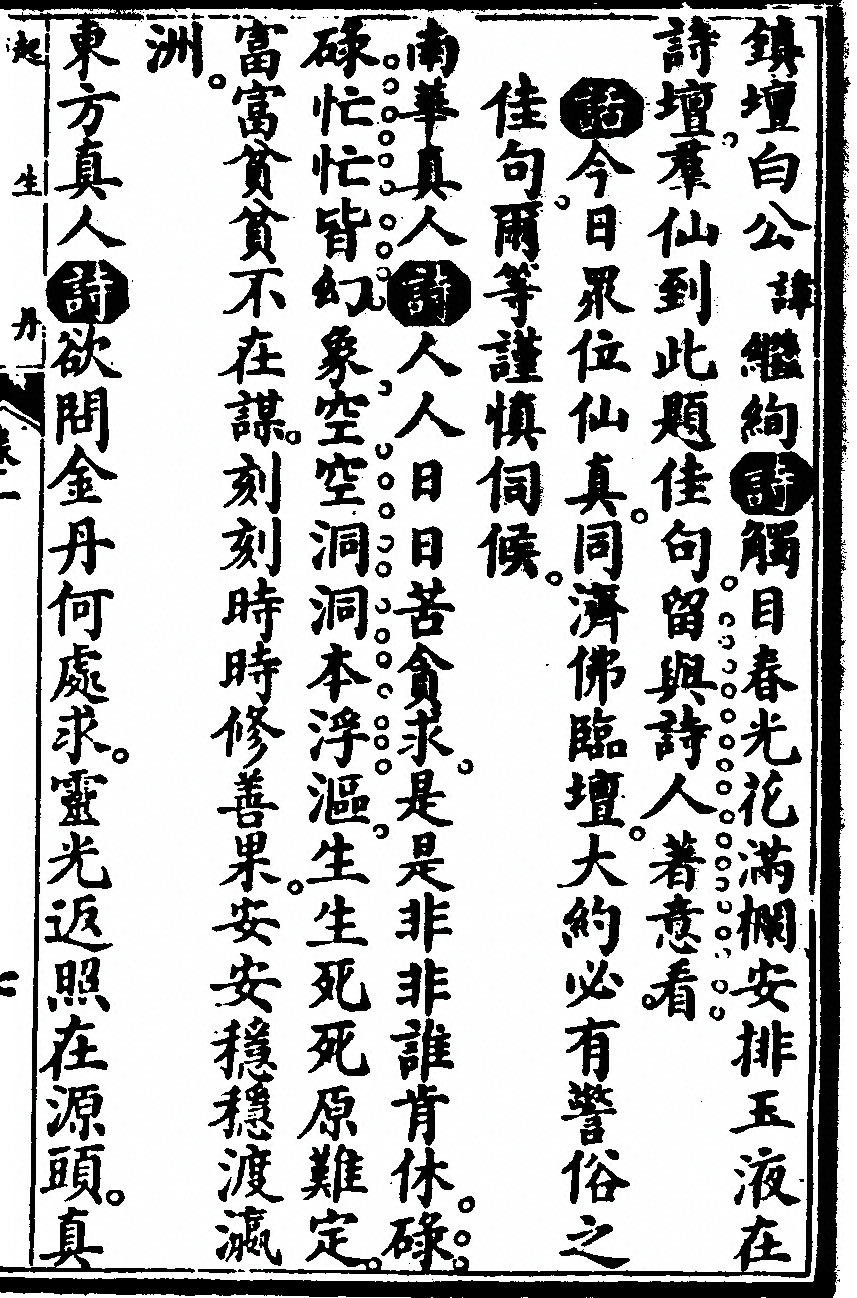 鎮壇白公諱繼絢詩觸目春光花滿欄安排玉液在
詩壇。羣仙到此題佳句留與詩人著意看。
詞今日眾位仙真。同濟佛臨壇。大約必有警俗之
佳句。爾等謹慎伺候。
南華真人詩人人日日苦貪求。是是非非誰肯休。碌
碌忙忙皆幻象。空空洞洞本浮漚。生生死死原難定。
富富貧貧不在謀。刻刻時時修善果。安安穩穩渡瀛
洲。
東方真人詩欲問金丹何處求。靈光返照在源頭。真
起生丹